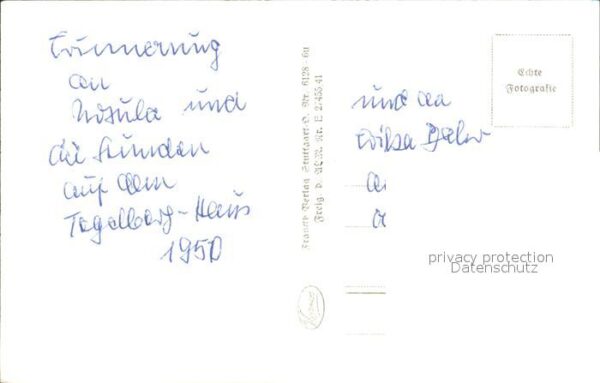 Erinnerung
an
Ursula und
die Stunden
auf dem
Tegelberg-Haus
1950
Verlag Stuttgart-O. Nr. 6128
Freig. d. RLM. Nr. E 27455/41
und an
Erika
Echte
Fotografie
privacy protection
Datenschutz